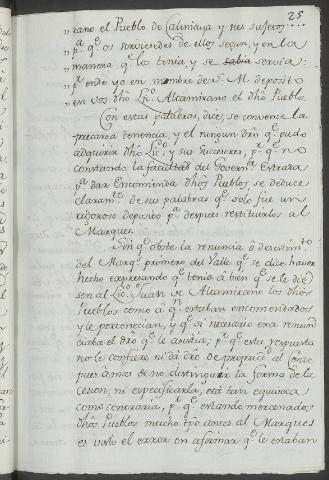 25
„ rano el Pueblo de Calimaya y sus sujetos
„ p.ª q.e os sirviesedes de ellos segun, y en la
„ manera q.e los tenia, y se sabia servia:
„ p.r ende yo en nombre de S. M. deposito
„ en vos dho Lic.do Altamirano el dho Pueblo
Con estas palabras, dice, se convence la
precarea tenencia, y el ningun dro q.e pudo
adquirir dho Lic.do y sus succesores, p.r q.e no
constando la facultad del Govern.r Estrada
p.ª dar Encomienda dhos Pueblos, se deduce
claram.te de sus palabras q.e solo fue un
rigoroso deposito p.ª despues restituirlos al
Marques.
Sin q.e obste la renuncia ó desestim.to
del Marq.s primero del Valle q.e se dice haver
hecho expresando q.e tenia á bien q.e se le die
sen al Lic.do Juan de Altamirano los dhos
Pueblos como á q.n estaban encomendados
y le pertenecian, y q.e si necesario era renun
ciaba el dro q.e le asistia; p.r q.e esta respuesta
no le confiere ni dá dro de propried.d al Conde
pues á mas de no distinguir la forma de la
cesion, ni especificarla, está tan equivoca
como contraria, p.r q.e estando mercenados
dhos Pueblos mucho tpo antes al Marques
es visto el error en afirmar q.e le estaban